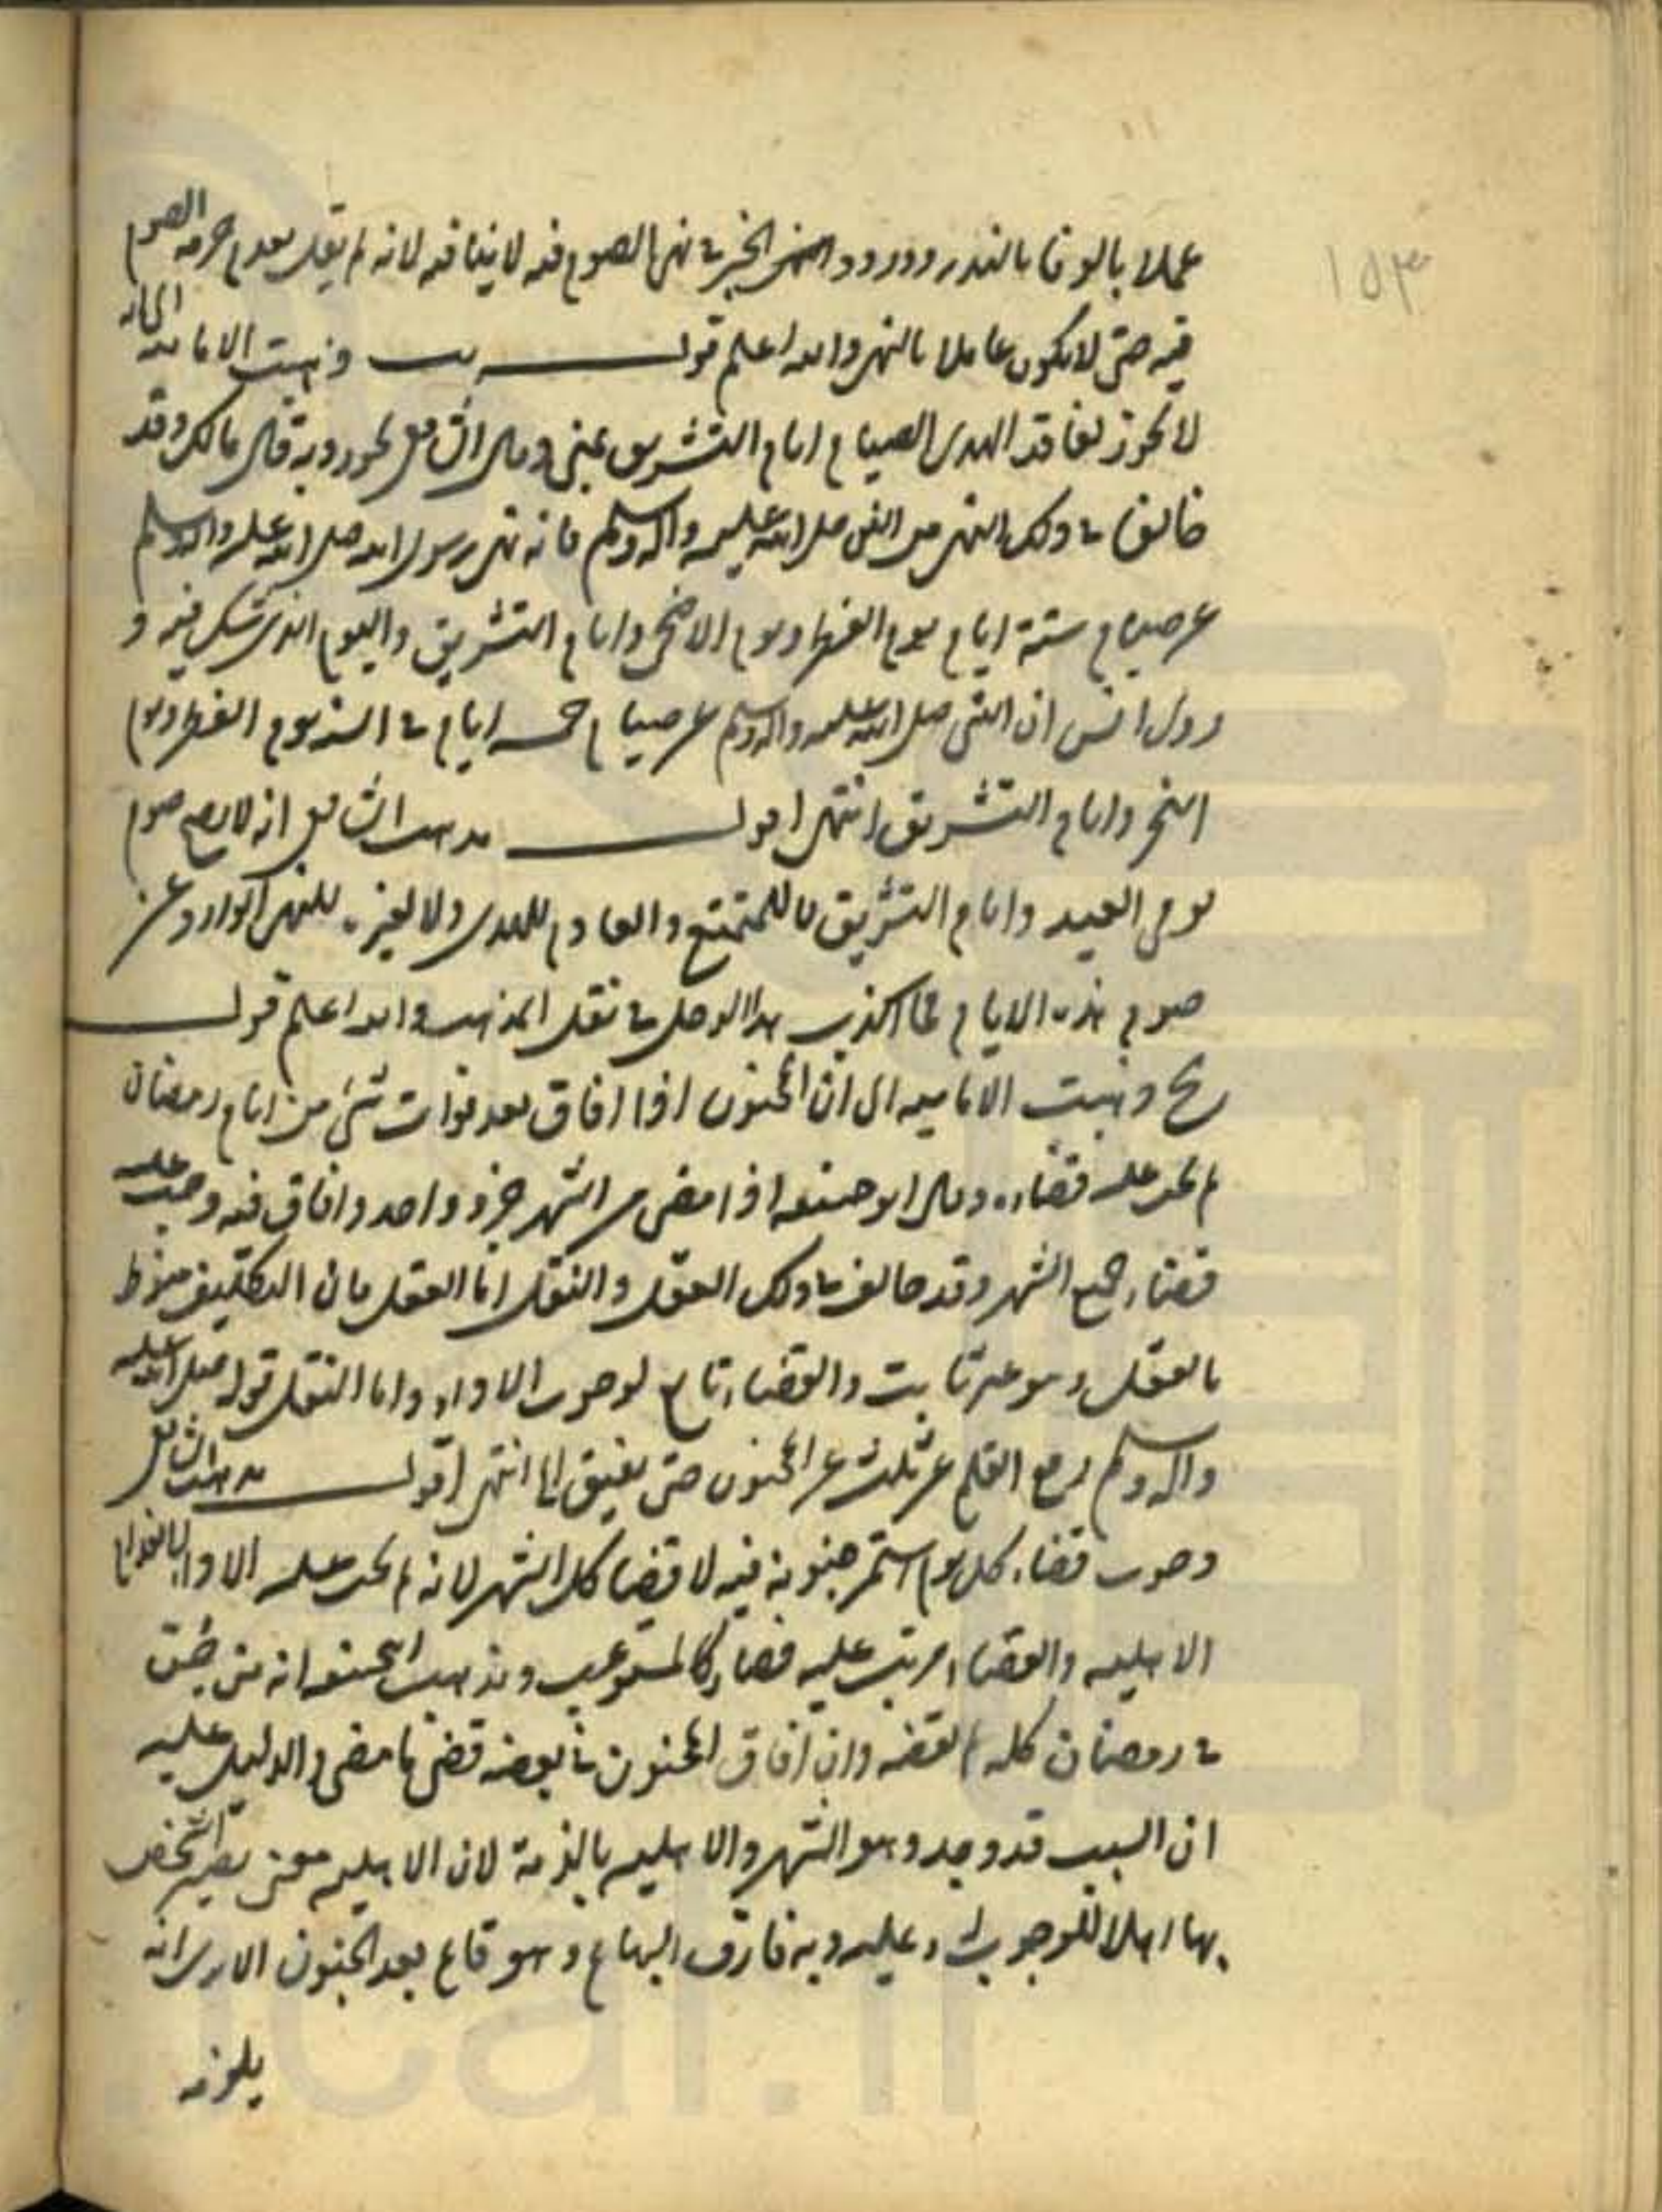 ١٥٣
عملا بالوفا بالنذر وورود الخبر في نهي الصوم فيه لا ينافيه لانه لم يقل بعدم حرمة الصوم
فيه حتى لا يكون عاملا بالنهي والله اعلم قوله يب وذهبت الامامية الى انه
لا يجوز لفاقد الهدى الصيام ايام التشريق بمنى وقال الشافعي يجوز وبه قال مالك وقد
خالفا في ذلك النهي من النبي صلى الله عليه واله وسلم فانه نهى رسول الله صلى الله عليه واله وسلم
عن صيام ستة ايام يوم الفطر ويوم الاضحى وايام التشريق واليوم الذي يشك فيه و
روى انس ان النبي صلى الله عليه واله وسلم عن صيام خمسة ايام في السنة يوم الفطر ويوم
النحر وايام التشريق انتهى اقول مذهب الشافعي انه لا يصح صوم
يوم العيد وايام التشريق لا للمتمتع والعادم للهدى ولا لغيره للنهي الوارد عن
صوم هذه الايام فما اكذب هذا الرجل في نقل المذهب والله اعلم قوله
يج وذهبت الامامية الى ان المجنون اذا افاق بعد فوات شئ من ايام رمضان
لم يجب عليه قضاؤه وقال ابو حنيفة اذا مضى من الشهر جزء واحد وافاق فيه وجب عليه
قضاء جميع الشهر وقد خالف في ذلك العقل والنقل اما العقل فان التكليف منوط
بالعقل وهو غير ثابت والقضاء تابع لوجوب الاداء واما النقل قوله صلى الله عليه
واله وسلم رفع القلم عن ثلث عن المجنون حتى يفيق انتهى اقول مذهب الشافعي
وجوب قضاء كل يوم استمر جنونه فيه لا قضا كل الشهر لانه لم يجب عليه الاداء لانعدام
الاهلية والقضاء مرتب عليه فصار كالمستوعب ومذهب ابي حنيفة انه من جن
في رمضان كله لم يقضه وان افاق المجنون في بعضه قضى ما مضى والدليل عليه
ان السبب قد وجد وهو الشهر والاهلية بالذمة لان الاهلية معنى يصير الشخص
بها اهلا للوجوب له وعليه وبه فارق البهايم وهو قايم بعد الجنون الا يرى انه
يلزمه